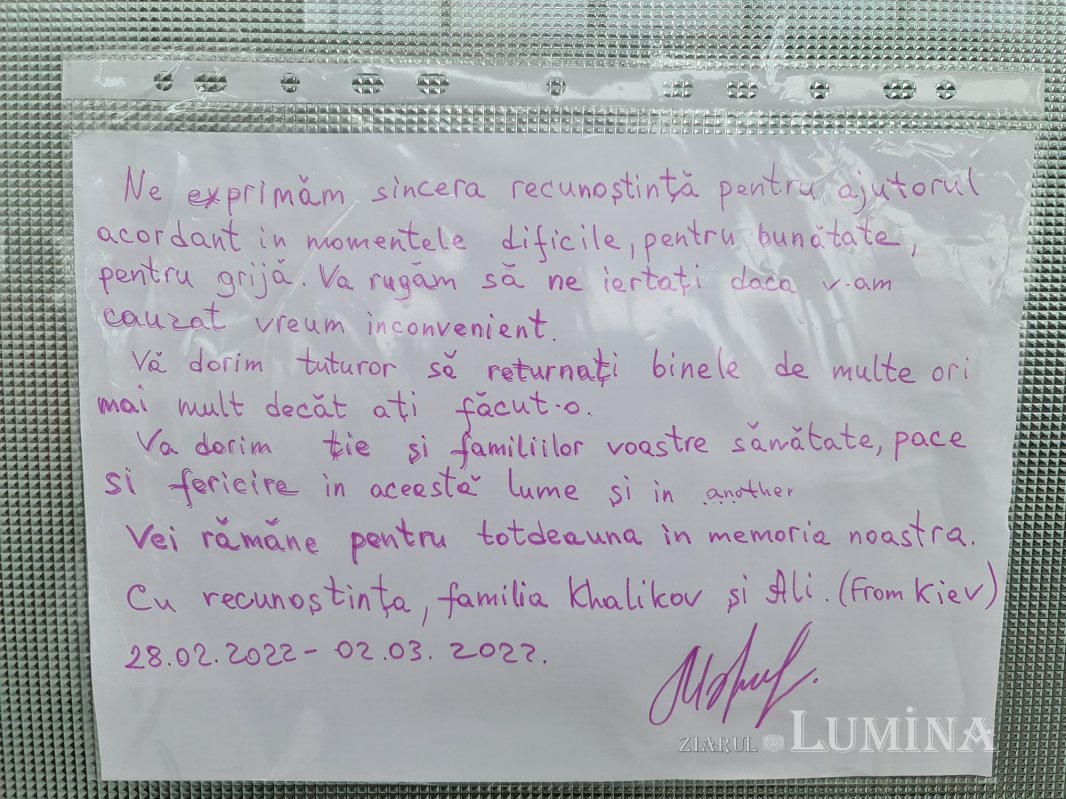 Ne exprimăm sincera recunoștință pentru ajutorul
acordant in momentele dificile, pentru bunătate,
pentru grijă. Va rugăm să ne iertați daca v-am
cauzat vreum inconvenient.
Vă dorim tuturor să returnați binele de multe ori
mai mult decăt ați făcut-o.
Va dorim ție și familiilor voastre sănătate, pace
si fericire in această lume și in another
Vei rămăne pentru totdeauna in memoria noastra.
Cu recunoștința, familia Khalikov și Ali. (From Kiev)
28.02.2022 - 02.03.2022.
ZIARUL LUMINA